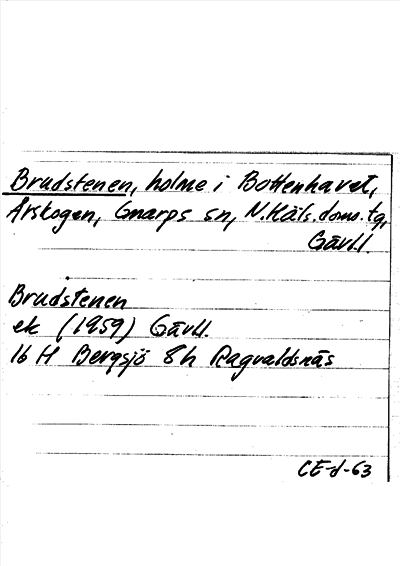 Brudstenen, holme i Bottenhavet,
Årskogen, Gnarps sn, N.Häls.doms.tg,
Gävl.l.
Brudstenen
ek (1959) Gävl.l.
16 H Bergsjö 8h Ragvaldsnäs
CE-d-63